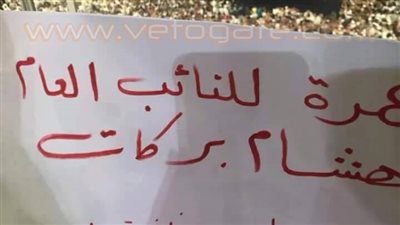 www.vetogate.com
عمرة للنائب العام
هشام بركات